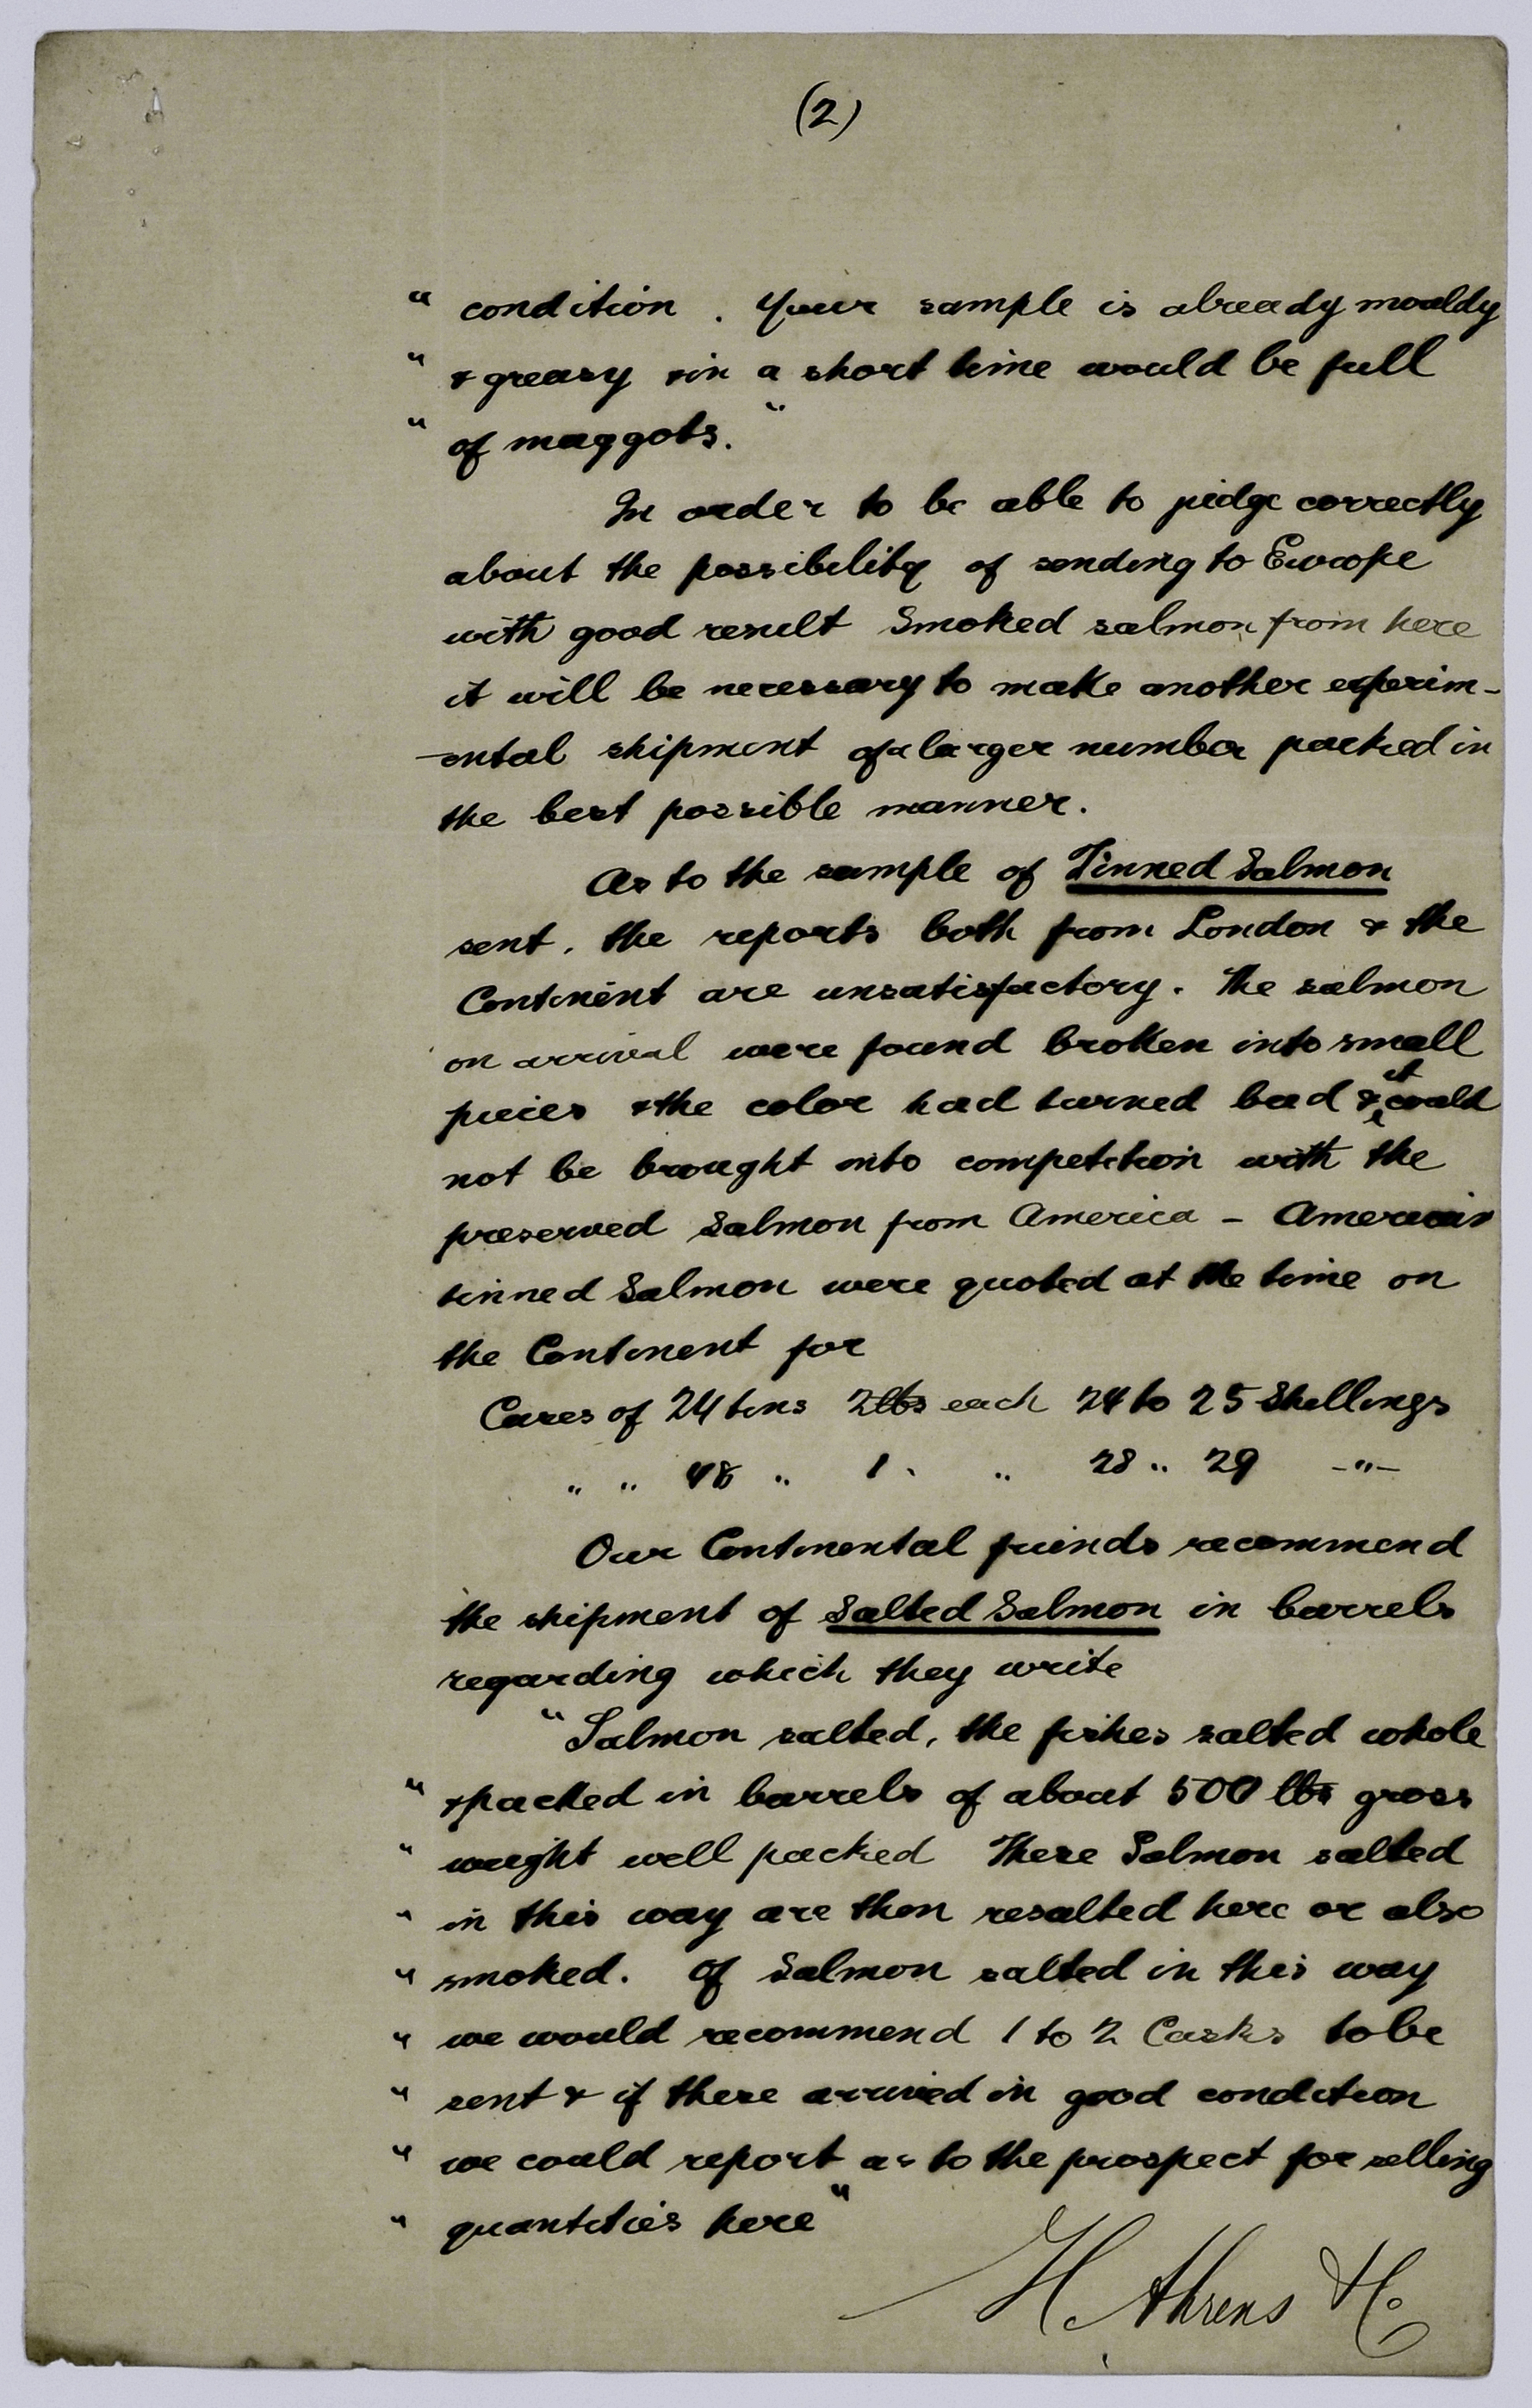 (2)
" condition . Your sample is already mouldy
" & greasy & in a short time would be full
" of maggots. "
In order to be able to judge correctly
about the possibility of sending to Europe
with good result Smoked salmon from here
it will be necessary to make another experim-
-ental shipment of a larger number packed in
the best possible manner.
As to the sample of Tinned Salmon
sent, the reports both from London & the
Continent are unsatisfactory. The salmon
on arrival were found broken into small
pieces & the color had turned bad & it could
not be brought into competition with the
preserved Salmon from America – American
tinned Salmon were quoted at the time on
the Continent for
Cases of 24 tins 2 lbs each 24 to 25 Shillings
" " 48 " 1 " " 28 " 29 –"–
Our Continental friends recommend
the shipment of Salted Salmon in barrels
regarding which they write
" Salmon salted, the fishes salted whole
" & packed in barrels of about 500 lbs gross
" weight well packed These Salmon salted
" in this way are then resalted here or also
" smoked. Of Salmon salted in this way
" we would recommend 1 to 2 Casks to be
" sent & if these arrived in good condition
" we could report as to the prospect for selling
" quantities here "
H. Ahrens & Co